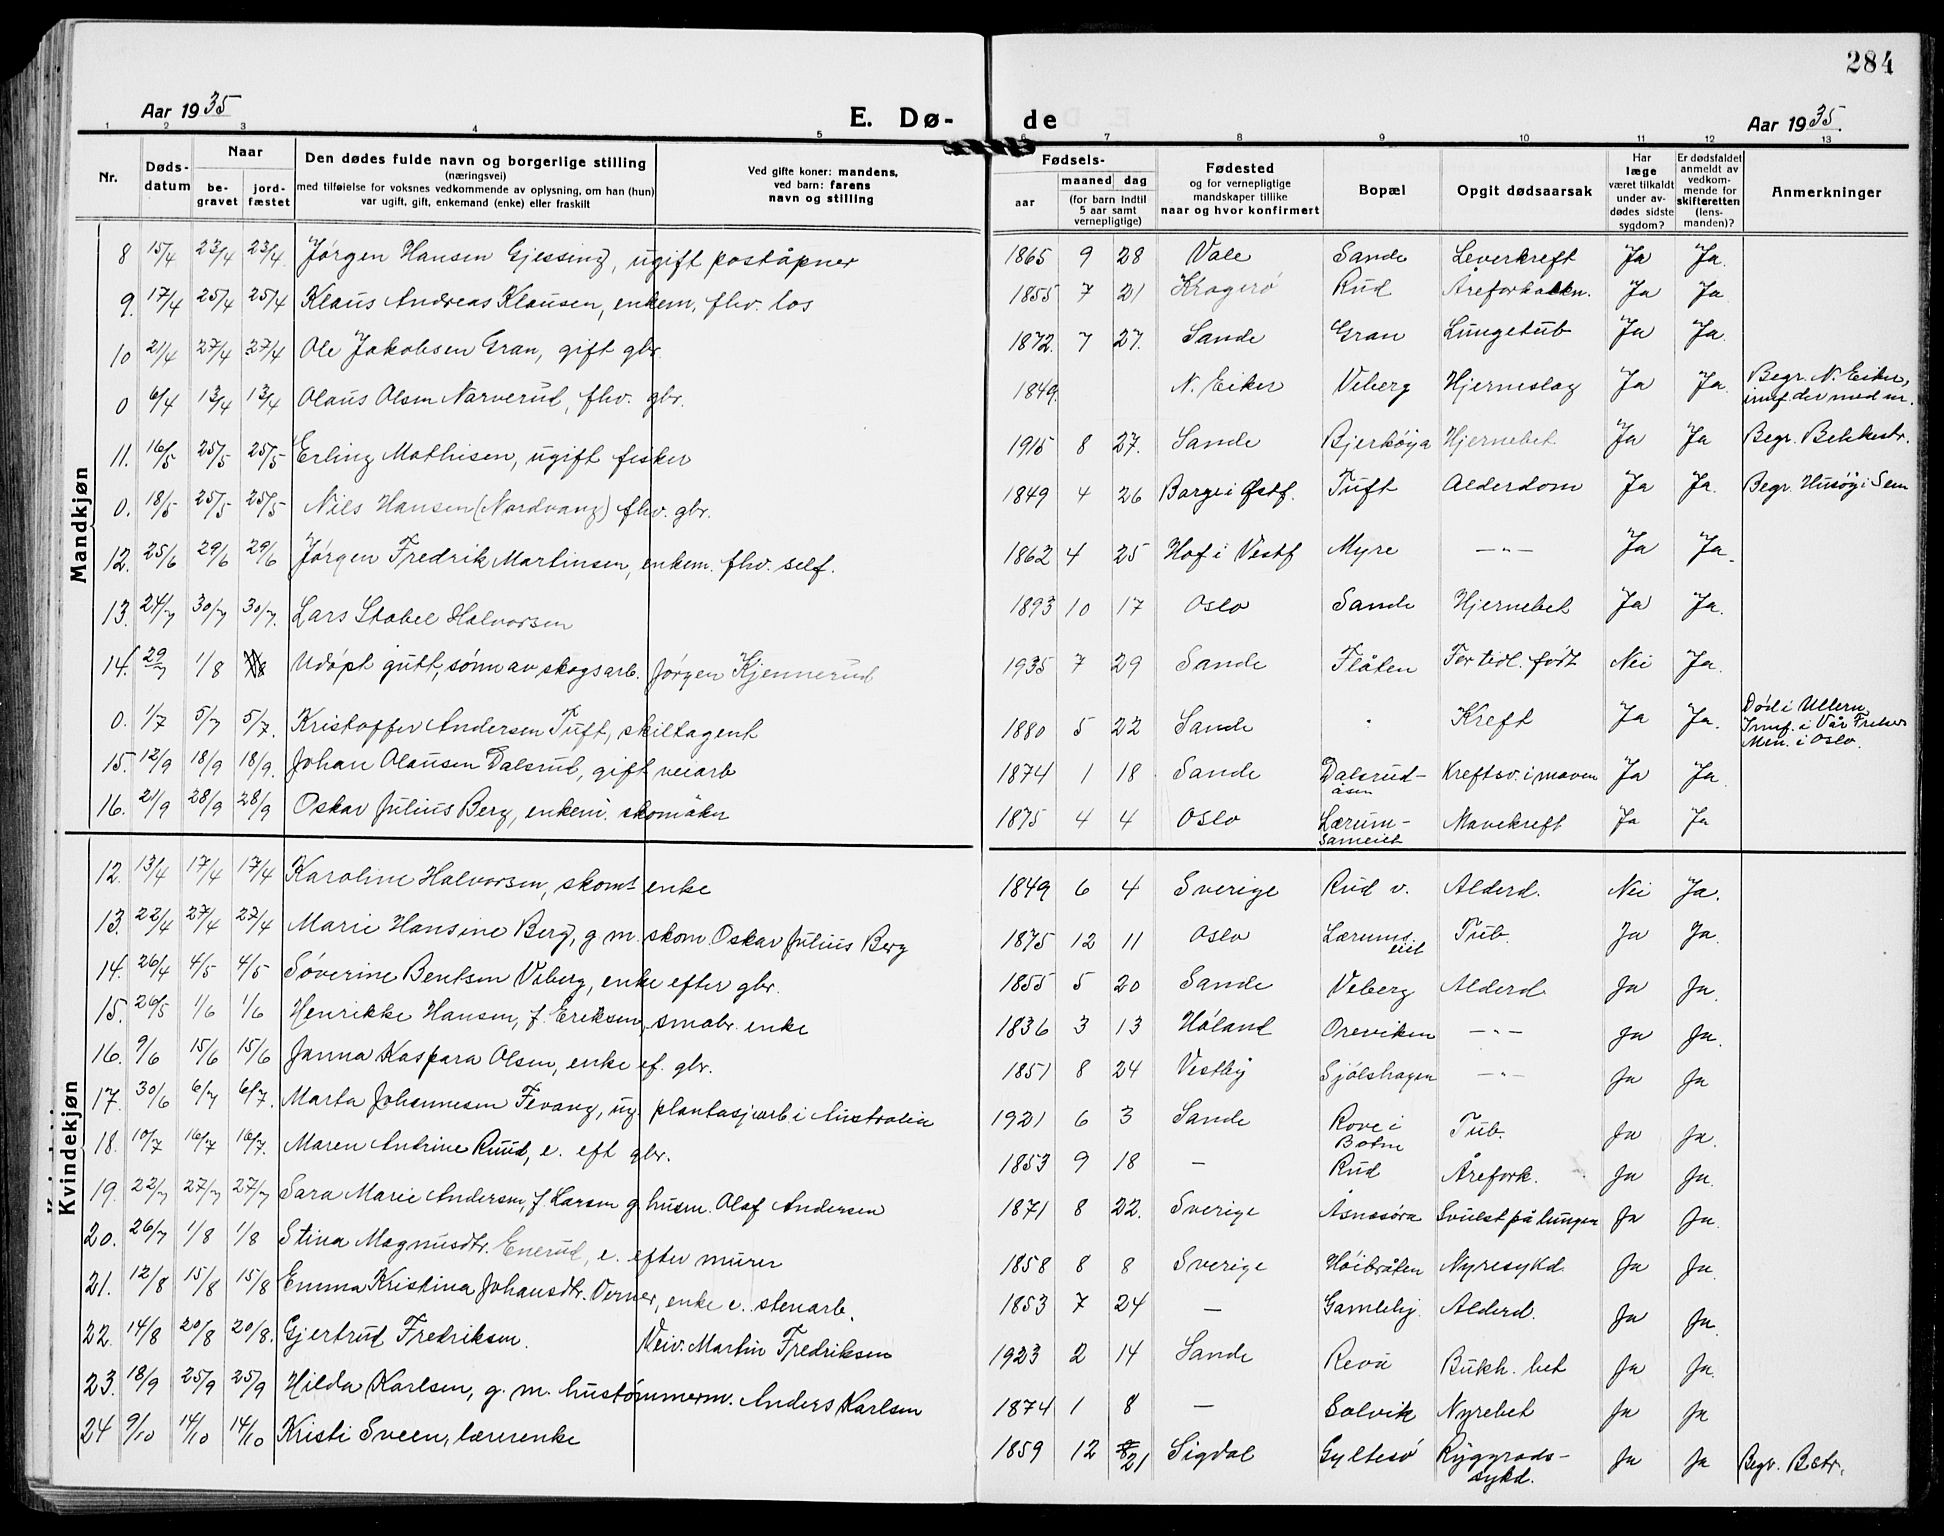 284
Aar 1935
E. Dø-
de
Aar 1935.
1 2 3 4 5 6 7 8 9 10 11 12 13
Nr.
Døds-
datum
Naar
be-
gravet
jord-
fæstet
Den dødes fulde navn og borgerlige stilling
(næringsvei)
med tilføielse for voksnes vedkommende av oplysning, om han (hun)
var ugift, gift, enkemand (enke) eller fraskilt
Ved gifte koner: mandens,
ved barn: farens
navn og stilling
Fødsels-
aar
maaned dag
(for barn indtil
5 aar samt
vernepligtige)
Fødested
og for vernepligtige
mandskaper tillike
naar og hvor konfirmert
Bopæl
Opgit dødsaarsak
Har
læge
været tilkaldt
under av-
dødes sidste
sygdom?
Er dødsfaldet
anmeldt av
vedkom-
mende for
skifteretten
(lens-
manden)?
Anmerkninger
Mandkjøn
8 15/4 23/4 23/4. Jørgen Hansen Gjessing, ugift poståpner 1865 9 28 Vale Sande Leverkreft Ja Ja.
9. 17/4 25/4 25/4 Klaus Andreas Klausen, enkem. fhv. los 1855 7 21 Kragerø Rud Åreforkalkn. Ja Ja
10 21/4 27/4 27/4 Ole Jakobsen Gran, gift gbr. 1872. 7 27. Sande Gran Lungetub Ja Ja.
0 6/4 13/4 13/4 Olaus Olsen Narverud, fhv. gbr. 1849. N. Eiker Veberg Hjerneslag Ja Ja. Begr. N. Eiker,
innf. der med nr.
11. 16/5 25/5 25/5 Erling Mathisen, ugift fisker 1915 8 27. Sande Bjerkøya Hjernebet. Ja Ja Begr. Bekkestr.
0. 18/5 25/5 25/5 Nils Hansen (Nordvang) fhv. gbr. 1849 4 26 Borge i Østf. Tuft Alderdom Ja Ja. Begr. Husøy i Sem
12. 25/6 29/6 29/6 Jørgen Fredrik Martinsen, enkem. fhv. self. 1862 4 25 Hof i Vestf Myre —"— Ja Ja.
13. 24/7 30/7 30/7. Lars Stabel Halvorsen 1893 10 17 Oslo Sande Hjernebet Ja Ja.
14. 29/7 1/8 Udøpt gutt, sønn av skogsarb. Jørgen Kjennerud 1935 7 29 Sande Flåten For tidl. født Nei Ja.
0. 1/7 5/7 5/7. Kristoffer Andersen Tuft, skiltagent 1880 5 22 Sande " Kreft Ja Ja. Død i Ullern,
Innf. i Vår Frelsers
Men. i Oslo.
15. 12/9 18/9 18/9. Johan Olausen Dalsrud, gift veiarb 1874 1 18 Sande Dalsrud-
åsen Kreftsv. i maven Ja Ja.
16. 21/9 28/9 28/9 Oskar Julius Berg, enkem. skomaker 1875 4 4 Oslo Lærum-
sameiet Mavekreft Ja Ja
Kvindekjøn
12. 13/4 17/4 17/4 Karoline Halvorsen, skoms enke 1849 6 4 Sverige Rud v. Alderd. Nei Ja.
13. 22/4 27/4 27/4 Marie Hansine Berg, g m. skom Oskar Julius Berg 1875 12 11 Oslo Lærums
eiet Tub. Ja Ja.
14. 26/4 4/5 4/5 Søverine Bentsen Veberg, enke efter gbr. 1855 5 20 Sande Veberg Alderd. Ja Ja.
15. 26/5 1/6 1/6 Henrikke Hansen, f. Eriksen, småbr. enke 1836 3 13 Høland Oreviken —"— Ja Ja.
16. 9/6 15/6 15/6 Janna Kaspara Olsen, enke ef. gbr. 1851 8 24 Vestby Sjølshagen —"— Ja Ja
17. 30/6 6/7 6/7. Marta Johannesen Fevang, ug. plantasjearb i Australia 1921 6 3 Sande Rove i
Botne Tub. Ja Ja.
18. 10/7 16/7 16/7. Maren Andrine Ruud, e. eft gbr. 1853 9 18 — Rud Årefork. Ja Ja.
19. 22/7 27/7 27/7 Sara Marie Andersen, f. Larsen g husm. Olaf Andersen 1871 8 22. Sverige Åsnesøra Svulst på lungen Ja Ja.
20. 26/7 1/8 1/8 Stina Magnusdtr. Enerud, e. efter murer 1858 8 8 Sverige Høibråten Nyresykd. Ja Ja.
21. 12/8 15/8 15/8 Emma Kristina Johansdtr. Verner, enke e. stenarb. 1853 7 24 — Gamlehj. Alderd. Ja Ja.
22. 14/8 20/8 20/8. Gjertrud Fredriksen. Veiv. Martin Fredriksen 1923 2 14 Sande Revå Bukh. bet Ja Ja.
23. 18/9 25/9 25/9 Hilda Karlsen, g. m. hustømmerm. Anders Karlsen 1874 1 8 — Solvik Nyrebet Ja Ja
24 9/10 14/10 14/10 Kristi Sveen, lærerenke 1859 12 21 Sigdal Gyltesø Ryggrads-
sykd. Ja Ja Begr. Botr.